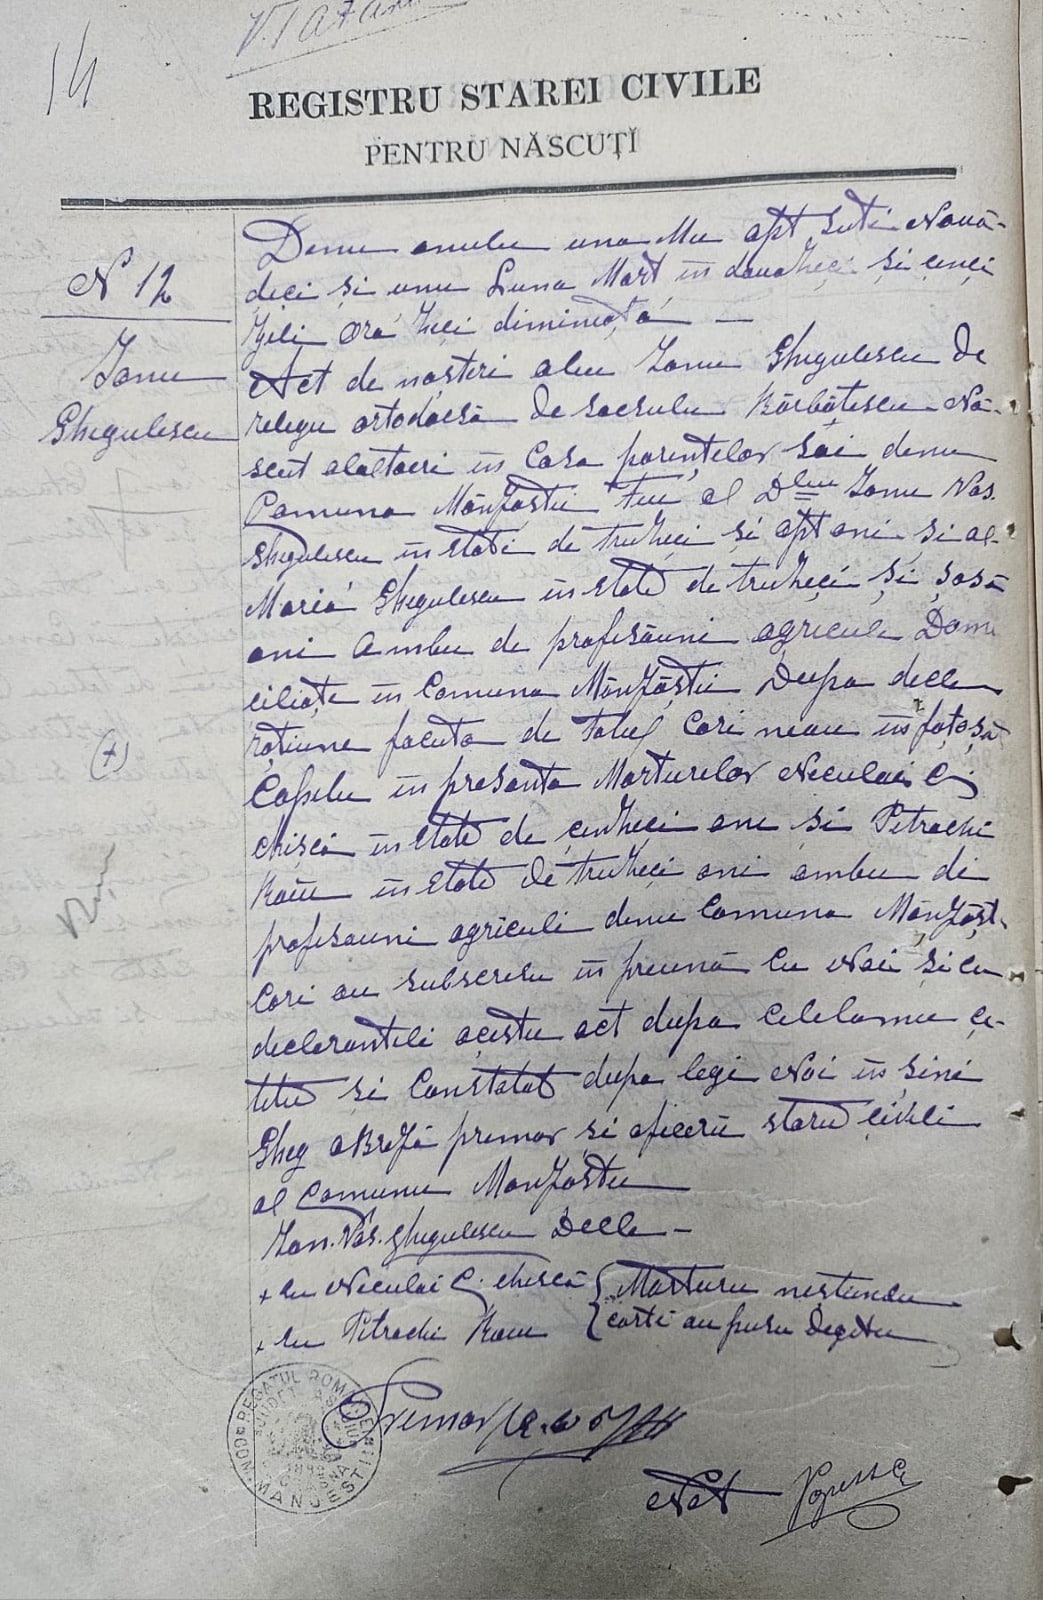 14
REGISTRU STAREI CIVILE
PENTRU NĂSCUȚI
N 12
Ionu
Ghegulescu
Denu anulu una Mie opt suti Nouă-
deci și unu Luna Mart în douăzeci și cinci
zeli ora zeci dimineața
Act de nașteri alu Ionu Ghegulescu de
relegie ortodocsă de secsulu Bărbătescu Nă-
scut alaltaeri în Casa părințelor săi denu
Comuna Mănjăștii Fiu al Dlui Ionu Vas.
Ghegulescu în etati de treizeci și opt ani și al
Maria Ghegulescu în etate de treizeci și șasă
ani Ambii de profesiuni agriculi Domi
ciliațe în Comuna Mănjăștii Dupa decla
rațiune facuta de Tatul Cari neau înfățosat
Copelu în presanța Marturelor Neculai C.
Chișcă în etate de cinzeci ani și Petrachi
în etate de treizeci ani ambii de
profesiuni agriculi denu Comuna Mănjăști
Cari au subscrisu în preună cu Noi și cu
declarantile acestu act dupa ce lelamu ce-
tetu și Constatat dupa legi Noi înșine
Gheg premar și oficeru stari civili
al Comunii Manjăștii
Ion. Vas. Ghegulescu Decla-
+ eu Neculai C. Chiscă Marturu neștiindu
+ eu Petrachi carti au pusu degetu
Primar
Not
REGATUL ROMÂNIEI
JUDET
COM. MANJESTII